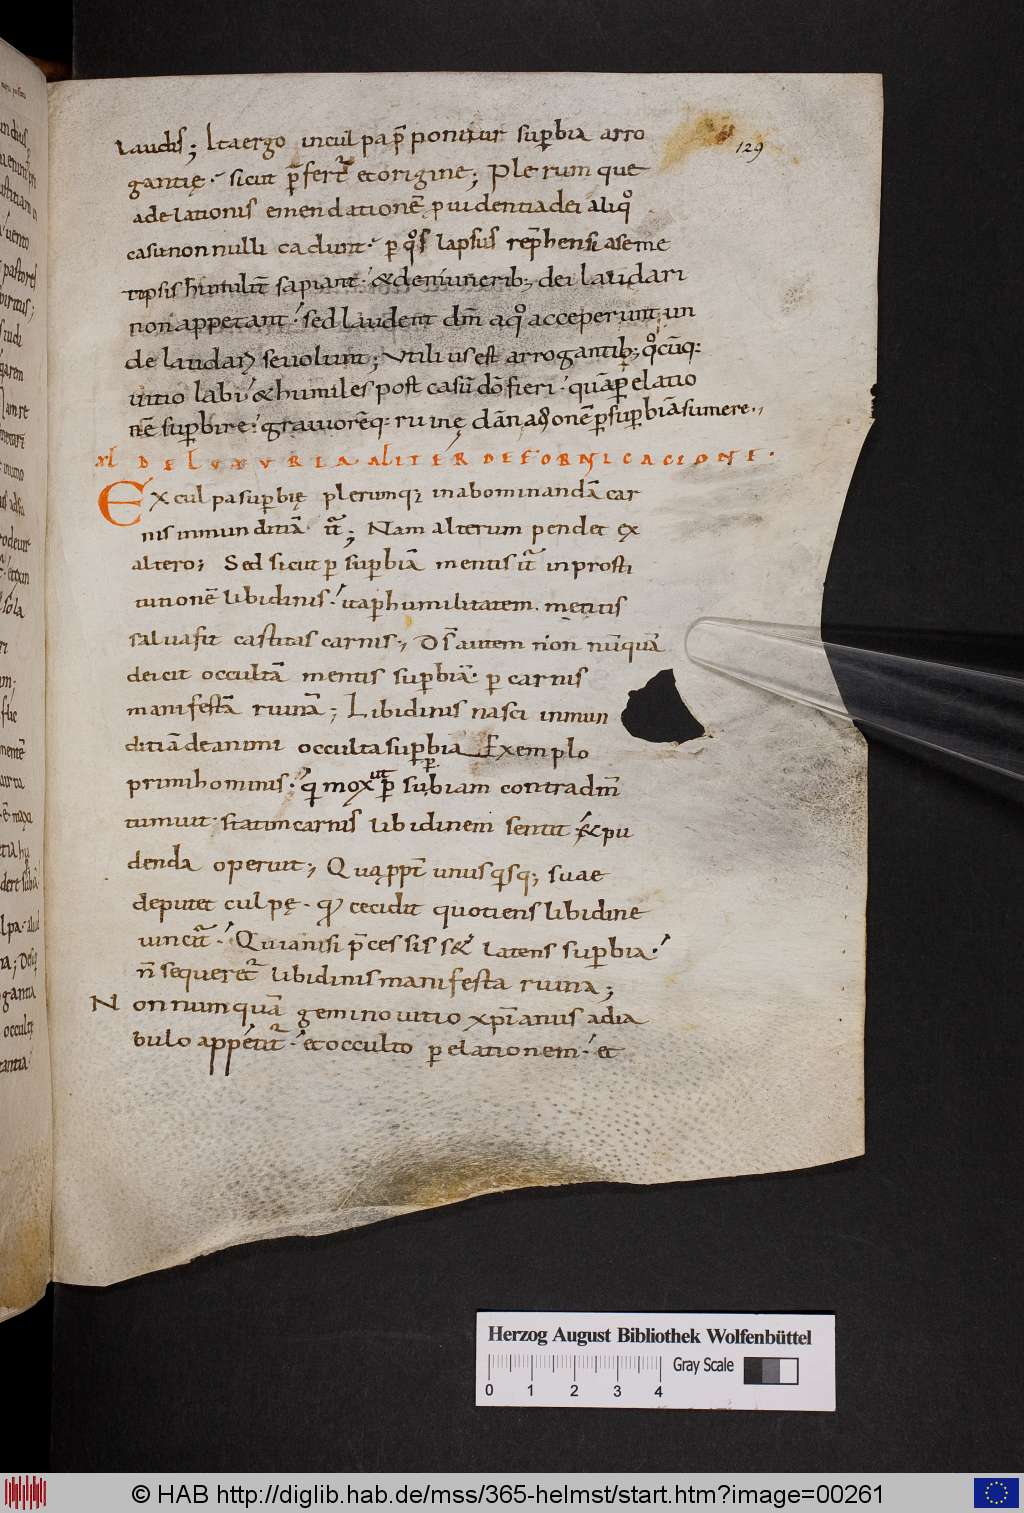 129
laudis; Ita ergo in culpa p̄ponitur sup̱bia arro
gantię. sicut p̄fert̄ et origine; Plerumque
ad elationis emendationē ꝓuidentia dei aliqͦ
casu nonnulli cadunt. ꝑ qͦs lapsus rep̄hensi a seme
tipsis humiliū sapiant. & de muneribꝫ dei laudari
non appetant. sed laudent dn̄m a qͦ acceperunt. un
de laudari se uolunt; Utilius est arrogantibꝫ qͦcūqꝫ
uitio labi. & humiles post casū dō fieri. quā ꝑ elatio
nē suꝑbire. grauiorēqꝫ ruinę dānationē ꝑ suꝑbiā sumere.,
XL DE LUXURIA ALITER DE FORNICACIONE.
Ex culpa suꝑbię plerumqꝫ in abominandā car
nis inmunditiā it̄; Nam alterum pendet ex
altero; Sed sicut ꝑ suꝑbiā mentis it̄ in prosti
tutionē libidinis. ita ꝑ humilitatem mentis
salua fit castitas carnis; Ds̄ autem non nūquā
deicit occultā mentis suꝑbiā. ꝑ carnis
manifestā ruinā; Libidinis nasci inmun
ditiā de animi occulta suꝑbia Exemplo
primi hominis. qui mox ut ꝑ suꝑbiam contra dn̄m
tumuit. statim carnis libidinem sentit & pu
denda operuit; Quaꝓpt̄ unusqisqꝫ suae
deputet culpę. qđ cecidit quotiens libidine
uincit̄. Quia nisi p̄cessisset latens suꝑbia.
n̄ sequeret̄ libidinis manifesta ruina;
Non numquā gemino uitio xp̄ianus a dia
bulo appetit̄. et occulto ꝑ elationem. et
Herzog August Bibliothek Wolfenbüttel
0 1 2 3 4 Gray Scale
© HAB http://diglib.hab.de/mss/365-helmst/start.htm?image=00261